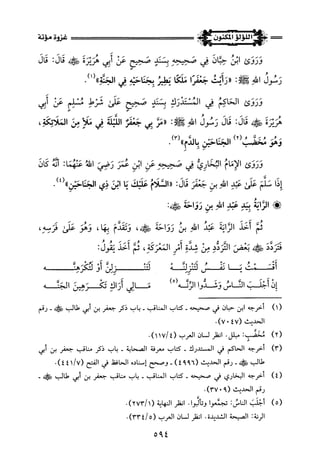 اللؤلؤ المكنون
غزوة مؤتة
وَرَوَى ابْنُ حِبَّانَ فِي صَحِيحِهِ بِسَنَدٍ صَحِيحٍ عَنْ أَبِي هُرَيْرَةَ ﵁ قَالَ: قَالَ
رَسُولُ اللهِ ﷺ: «رَأَيْتُ جَعْفَرًا مَلَكًا يَطِيرُ بِجَنَاحَيْهِ فِي الجَنَّةِ»(١).
وَرَوَى الحَاكِمُ فِي المُسْتَدْرَكِ بِسَنَدٍ صَحِيحٍ عَلَى شَرْطِ مُسْلِمٍ عَنْ أَبِي
هُرَيْرَةَ ﵁ قَالَ: قَالَ رَسُولُ اللهِ ﷺ: «مَرَّ بِي جَعْفَرٌ اللَّيْلَةَ فِي مَلَإٍ مِنَ المَلَائِكَةِ،
وَهُوَ مُخَضَّبُ(٢) الجَنَاحَيْنِ بِالدَّمِ»(٣).
وَرَوَى الإِمَامُ البُخَارِيُّ فِي صَحِيحِهِ عَنِ ابْنِ عُمَرَ رَضِيَ اللهُ عَنْهُمَا: أَنَّهُ كَانَ
إِذَا سَلَّمَ عَلَى عَبْدِ اللهِ بنِ جَعْفَرَ قَالَ: «السَّلَامُ عَلَيْكَ يَا ابْنَ ذِي الجَنَاحَيْنِ»(٤).
◉ الرَّايَةُ بِيَدِ عَبْدِ اللهِ بنِ رَوَاحَةَ ﵁:
ثُمَّ أَخَذَ الرَّايَةَ عَبْدُ اللهِ بنُ رَوَاحَةَ ﵁، وَتَقَدَّمَ بِهَا، وَهُوَ عَلَى فَرَسِهِ،
فَتَرَدَّدَ ﵁ بَعْضَ التَّرَدُّدِ مِنْ شِدَّةِ أَمْرِ المَعْرَكَةِ، ثُمَّ أَخَذَ يَقُولُ:
أَقْسَمْتُ يَا نَفْسُ لَتَنْزِلِنَّهْ لَتَنْزِلِنَّ أَوْ لَتُكْرَهِنَّهْ
إِنْ أَجْلَبَ النَّاسُ وَشَدُّوا الرَّنَّهْ(٥) مَالِي أَرَاكِ تَكْرَهِينَ الجَنَّهْ
(١) أخرجه ابن حبان في صحيحه ـ كتاب المناقب ـ باب ذكر جعفر بن أبي طالب ﵁ ـ رقم
الحديث (٧٠٤٧).
(٢) مُخضّبٌ: مبلل. انظر لسان العرب (١١٧/٤).
(٣) أخرجه الحاكم في المستدرك ـ كتاب معرفة الصحابة ـ باب ذكر مناقب جعفر بن أبي
طالب ﵁ ـ رقم الحديث (٤٩٩٦) ـ وصحح إسناده الحافظ في الفتح (٤٤١/٧).
(٤) أخرجه البخاري في صحيحه ـ كتاب المناقب ـ باب مناقب جعفر بن أبي طالب ﵁ ـ
رقم الحديث (٣٧٠٩).
(٥) أَجْلَبَ الناسُ: تجمَّعوا وتألَّبوا. انظر النهاية (٢٧٣/١).
الرنة: الصيحة الشديدة. انظر لسان العرب (٣٣٤/٥).
٥٩٤